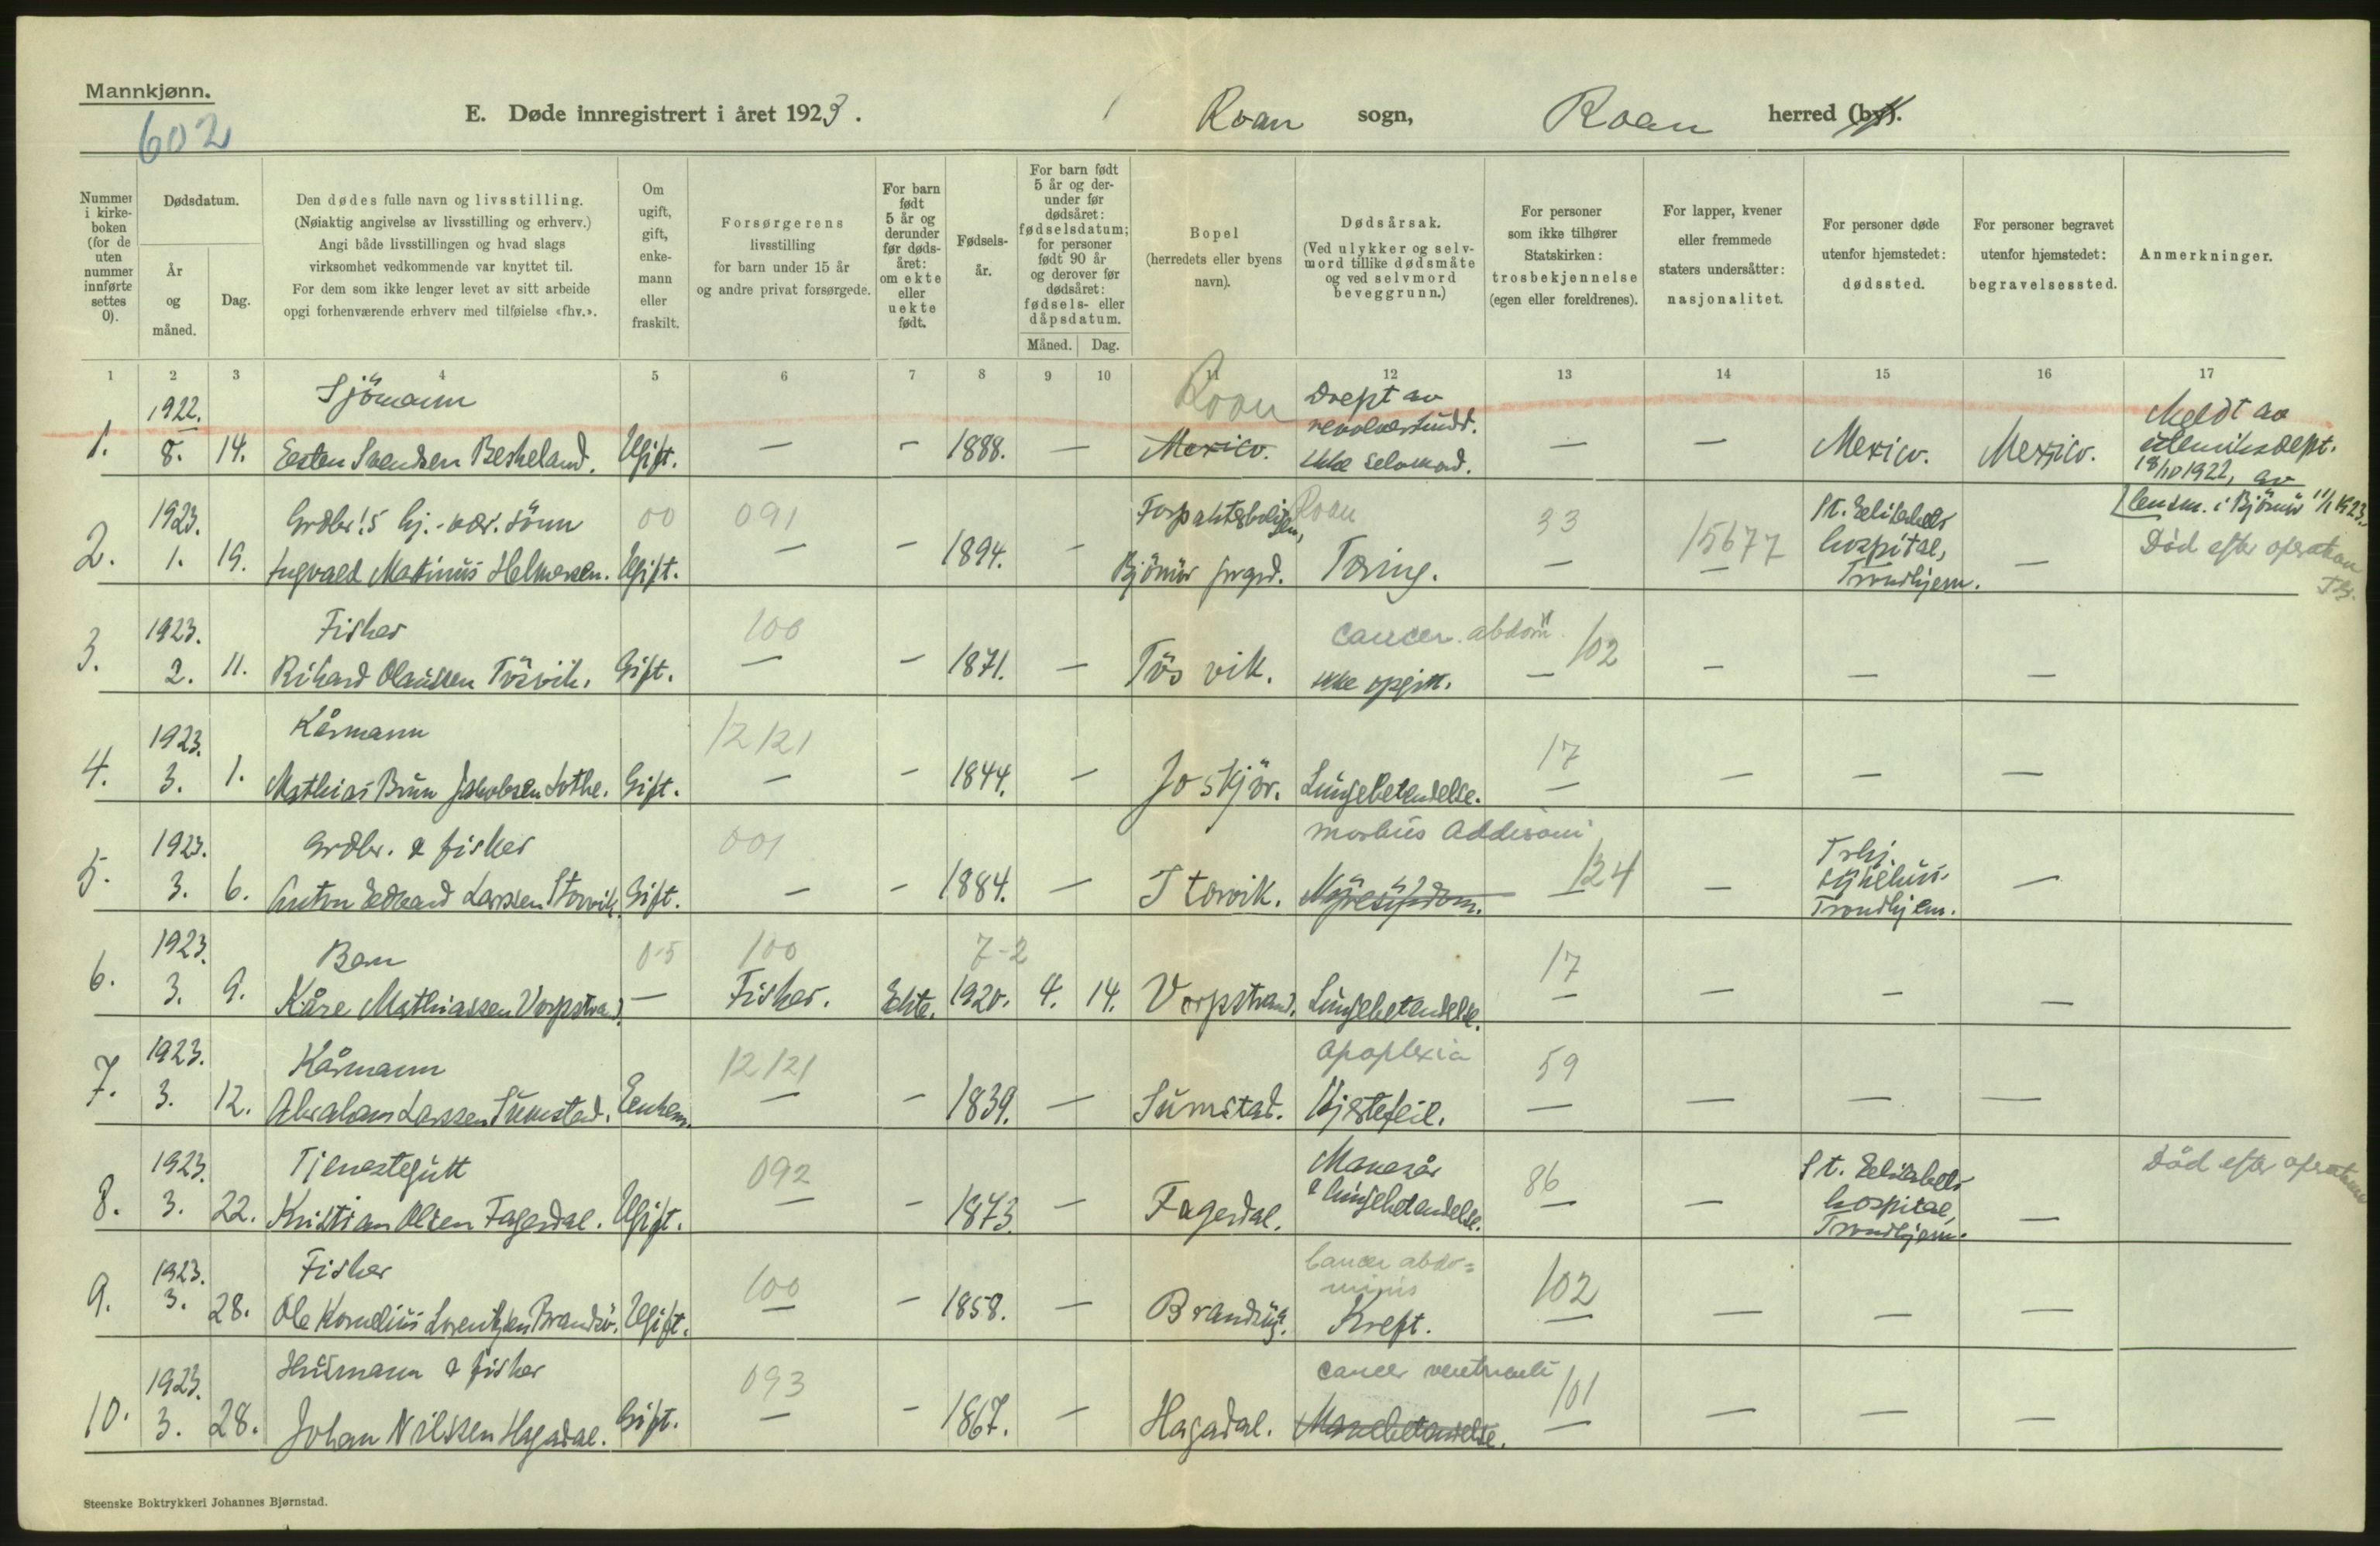 Mannkjønn.
602
E. Døde innregistrert i året 1923.
Roan sogn, Roan herred (by).
Nummer i kirkeboken (for de uten nummer innførte settes 0).
Dødsdatum.
År og måned.
Dag.
Den dødes fulle navn og livsstilling.
(Nøiaktig angivelse av livsstilling og erhverv.)
Angi både livsstillingen og hvad slags
virksomhet vedkommende var knyttet til.
For dem som ikke lenger levet av sitt arbeide
opgi forhenværende erhverv med tilføielse «fhv.».
Om ugift, gift, enkemann eller fraskilt.
Forsørgerens
livsstilling
for barn under 15 år
og andre privat forsørgede.
For barn født 5 år og derunder før dødsåret: om ekte eller uekte født.
Fødselsår.
For barn født 5 år og derunder før dødsåret: fødselsdatum; for personer født 90 år og derover før dødsåret: fødsels- eller dåpsdatum.
Måned. Dag.
Bopel
(herredets eller byens
navn).
Dødsårsak.
(Ved ulykker og selvmord tillike dødsmåte og ved selvmord beveggrunn.)
For personer
som ikke tilhører
Statskirken:
trosbekjennelse
(egen eller foreldrenes).
For lapper, kvener
eller fremmede
staters undersåtter:
nasjonalitet.
For personer døde
utenfor hjemstedet:
dødssted.
For personer begravet
utenfor hjemstedet:
begravelsessted.
Anmerkninger.
1 2 3 4 5 6 7 8 9 10 11 12 13 14 15 16 17
1922. Sjömann Roan Drept av revolverskudd. Meldt av
1. 8. 14. Esten Svendsen Beskeland. Ugift. — — 1888. — Mexico. ikke selvmord. — — Mexico. Mexico. utenriksdept.
18/10 1922, av
lensm. i Björnör 11/1 1923.
1923. Grdbr.s hj.-vær. sönn 00 091 Forpakterboligen, Roan 33 15677 St. Elisabeths
2. 1. 19. Ingvald Martinus Helmersen. Ugift. — — 1894. — Björnör prgrd. Tæring. — — hospital, Trondhjem. — Död efter operation
Tb.
1923. Fisker 100 cancer abdom. 102
3. 2. 11. Rikard Olaussen Tösvik. Gift. — — 1871. — Tösvik. ikke opgitt. — — — —
1923. Kårmann 12121 17
4. 3. 1. Mathias Brun Jakobsen Sothe. Gift. — — 1844. — Joskjör. Lungebetendelse. — — — —
1923. Grdbr. & fisker 001 morbus Addisoni 124 Trhj. sykehus.
5. 3. 6. Anton Edvard Larssen Storvik. Gift. — — 1884. — Storvik. Nyresykdom. — — Trondhjem. —
1923. Barn 0-5 100 7-2 17
6. 3. 9. Kåre Mathiassen Vorpstrand. — Fisker. Ekte. 1920. 4. 14. Vorpstrand. Lungebetendelse. — — — —
1923. Kårmann 12121 apoplexia 59
7. 3. 12. Abraham Larssen Sumstad. Enkem. — — 1839. — Sumstad. Hjertefeil. — — — —
1923. Tjenestegutt 092 Mavesår 86 St. Elisabeths
8. 3. 22. Kristian Olsen Fagerdal. Ugift. — — 1873. — Fagerdal. & lungebetendelse. — — hospital, Trondhjem. — Död efter operation
1923. Fisker 100 Cancer abdo=minis 102
9. 3. 28. Ole Kornelius Lorentzen Brandsö. Ugift. — — 1858. — Brandsöy. Kreft. — — — —
1923. Husmann & fisker 093 cancer ventriculi 101
10. 3. 28. Johan Nilssen Hagadal. Gift. — — 1867. — Hagadal. Mavebetendelse. — — — —
Steenske Boktrykkeri Johannes Bjørnstad.